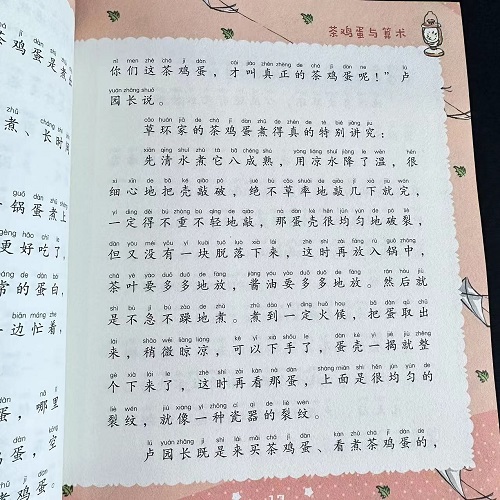 茶鸡蛋与算术
你们这茶鸡蛋，才叫真正的茶鸡蛋呢！”卢
园长说。
草环家的茶鸡蛋煮得真的特别讲究：
先清水煮它八成熟，用凉水降了温，很
细心地把壳敲破，绝不草率地敲几下就完，
一定得不重不轻地敲，那蛋壳很均匀地破裂，
但又没有一块脱落下来，这时再放入锅中，
茶叶要多多地放，酱油要多多地放。然后就
是不急不躁地煮。煮到一定火候，把蛋取出
来，稍微晾凉，可以下手了，蛋壳一揭就整
个下来了，这时再看那蛋，上面是很均匀的
裂纹，就像一种瓷器的裂纹。
卢园长既是来买茶鸡蛋、看煮茶鸡蛋的，
茶鸡蛋是煮出
煮、长时
锅蛋煮上
更好吃了
常的蛋白，
一边忙着，
蛋，哪里
蛋，空